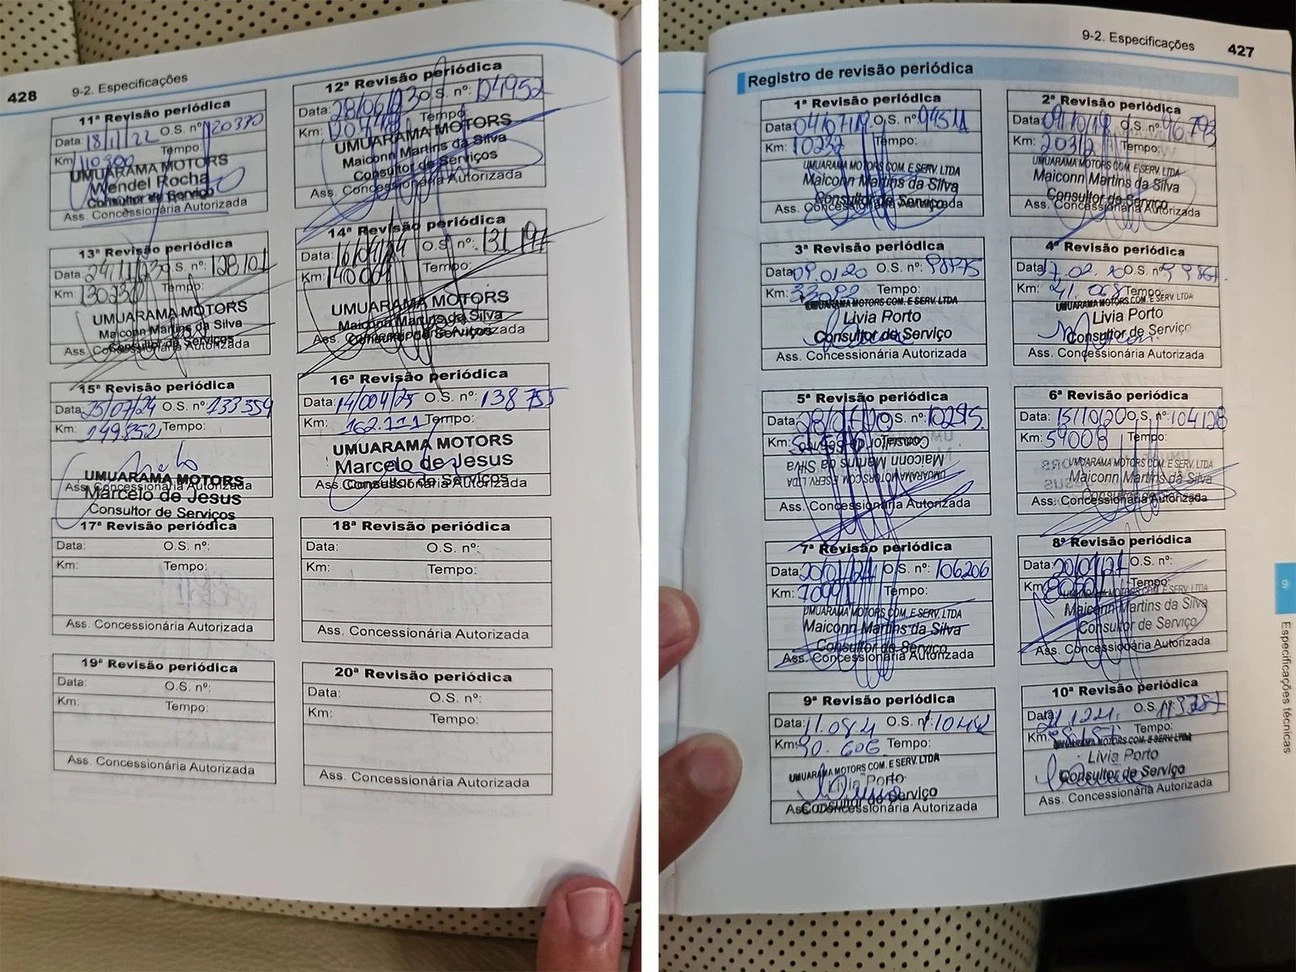 428 9-2. Especificações
11ª Revisão periódica
Data: 18/11/22 O.S. nº: 120370
Km: Tempo:
UMUARAMA MOTORS
Wendel Rocha
Consultor de Serviço
Ass. Concessionária Autorizada
12ª Revisão periódica
Data: 28/06/23 O.S. nº: 124952
Km: Tempo:
UMUARAMA MOTORS
Maiconn Martins da Silva
Consultor de Serviços
Ass. Concessionária Autorizada
13ª Revisão periódica
Data: O.S. nº: 128101
Km: Tempo:
UMUARAMA MOTORS
Maiconn Martins da Silva
Consultor de Serviços
Ass. Concessionária Autorizada
14ª Revisão periódica
Data: 16/04/24 O.S. nº: 131 197
Km: 140009 Tempo:
UMUARAMA MOTORS
Maiconn Martins da Silva
Consultor de Serviços
Ass. Concessionária Autorizada
15ª Revisão periódica
Data: 25/07/24 O.S. nº: 133 554
Km: 149852 Tempo:
UMUARAMA MOTORS
Ass. Concessionária Autorizada
Marcelo de Jesus
Consultor de Serviços
16ª Revisão periódica
Data: 14/004/25 O.S. nº: 138 755
Km: 162.111 Tempo:
UMUARAMA MOTORS
Marcelo de Jesus
Consultor de Serviços
Ass. Concessionária Autorizada
17ª Revisão periódica
Data: O.S. nº:
Km: Tempo:
Ass. Concessionária Autorizada
18ª Revisão periódica
Data: O.S. nº:
Km: Tempo:
Ass. Concessionária Autorizada
19ª Revisão periódica
Data: O.S. nº:
Km: Tempo:
Ass. Concessionária Autorizada
20ª Revisão periódica
Data: O.S. nº:
Km: Tempo:
Ass. Concessionária Autorizada
9-2. Especificações 427
Registro de revisão periódica
1ª Revisão periódica
Data: 04/07/19 O.S. nº: 94511
Km: 10232 Tempo:
UMUARAMA MOTORS COM. E SERV. LTDA
Maiconn Martins da Silva
Consultor de Serviço
Ass. Concessionária Autorizada
2ª Revisão periódica
Data: 09/10/19 O.S. nº: 96.793
Km: 20312 Tempo:
UMUARAMA MOTORS COM. E SERV. LTDA
Maiconn Martins da Silva
Consultor de Serviço
Ass. Concessionária Autorizada
3ª Revisão periódica
Data: 09.01.20 O.S. nº: 98975
Km: Tempo:
UMUARAMA MOTORS COM. E SERV. LTDA
Livia Porto
Consultor de Serviço
Ass. Concessionária Autorizada
4ª Revisão periódica
Data: O.S. nº:
Km: Tempo:
UMUARAMA MOTORS COM. E SERV. LTDA
Livia Porto
Consultor de Serviço
Ass. Concessionária Autorizada
5ª Revisão periódica
Data: O.S. nº: 102815
Km: Tempo:
Consultor de Serviço
Maiconn Martins da Silva
UMUARAMA MOTORS COM. E SERV. LTDA
Ass. Concessionária Autorizada
6ª Revisão periódica
Data: 15/10/20 O.S. nº: 104128
Km: 59008 Tempo:
UMUARAMA MOTORS COM. E SERV. LTDA
Maiconn Martins da Silva
Consultor de Serviço
Ass. Concessionária Autorizada
7ª Revisão periódica
Data: 20/01/21 O.S. nº: 106206
Km: Tempo:
UMUARAMA MOTORS COM. E SERV. LTDA
Maiconn Martins da Silva
Consultor de Serviço
Ass. Concessionária Autorizada
8ª Revisão periódica
Data: O.S. nº:
Km: Tempo:
Maiconn Martins da Silva
Consultor de Serviço
Ass. Concessionária Autorizada
9ª Revisão periódica
Data: O.S. nº: 110442
Km: 90.606 Tempo:
UMUARAMA MOTORS COM. E SERV. LTDA
Livia Porto
Consultor de Serviço
Ass. Concessionária Autorizada
10ª Revisão periódica
Data: O.S. nº:
Km: Tempo:
UMUARAMA MOTORS COM. E SERV. LTDA
Livia Porto
Consultor de Serviço
Ass. Concessionária Autorizada
9
Especificações técnicas